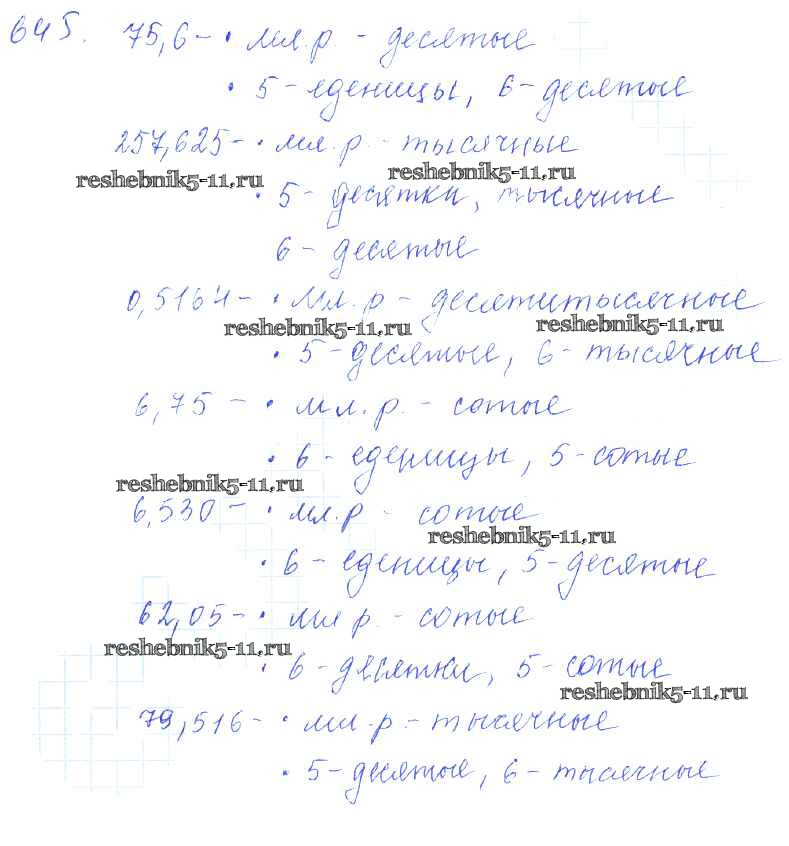 645. 75,6 - • мл.р. - десятые
• 5 - еденицы, 6 - десятые
257,625 - • мл.р. - тысячные
reshebnik5-11.ru reshebnik5-11.ru
• 5 - десятки, тысячные
6 - десятые
0,5164 - • мл.р - десятитысячные
reshebnik5-11.ru reshebnik5-11.ru
• 5 - десятые, 6 - тысячные
6,75 - • мл.р. - сотые
• 6 - еденицы, 5 - сотые
reshebnik5-11.ru
6,530 - • мл.р - сотые
reshebnik5-11.ru
• 6 - еденицы, 5 - десятые
62,05 - • мл р. - сотые
reshebnik5-11.ru
• 6 - десятки, 5 - сотые
reshebnik5-11.ru
79,516 - • мл.р. - тысячные
• 5 - десятые, 6 - тысячные